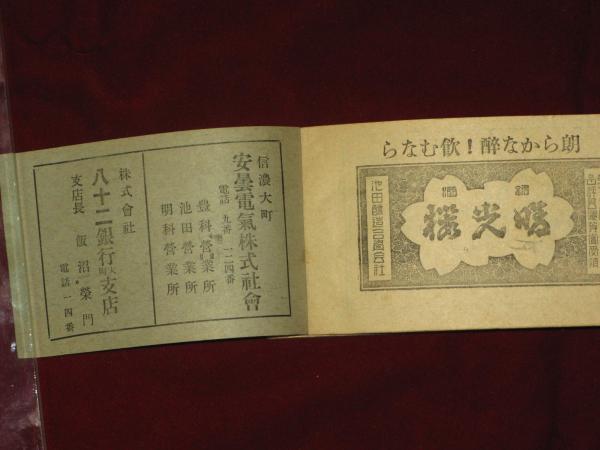 朝からな醉！飲むなら
清酒
晴光桜
池田釀造合資会社
信濃大町
安曇電氣株式社會
電話 九番 一二四番
豊科營業所
池田營業所
明科營業所
株式會社
八十二銀行大町支店
支店長 飯沼榮門
電話 一四番